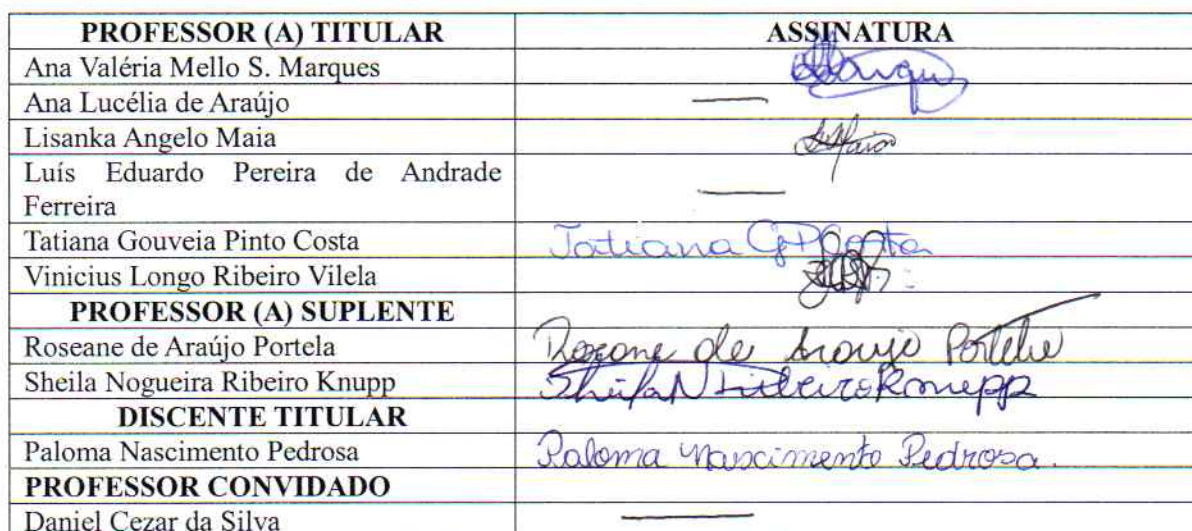 PROFESSOR (A) TITULAR ASSINATURA
Ana Valéria Mello S. Marques
Ana Lucélia de Araújo
Lisanka Angelo Maia
Luís Eduardo Pereira de Andrade
Ferreira
Tatiana Gouveia Pinto Costa Tatiana G P Costa
Vinicius Longo Ribeiro Vilela
PROFESSOR (A) SUPLENTE
Roseane de Araújo Portela Roseane de Araujo Portela
Sheila Nogueira Ribeiro Knupp Sheila N Ribeiro Knupp
DISCENTE TITULAR
Paloma Nascimento Pedrosa Paloma Nascimento Pedrosa.
PROFESSOR CONVIDADO
Daniel Cezar da Silva